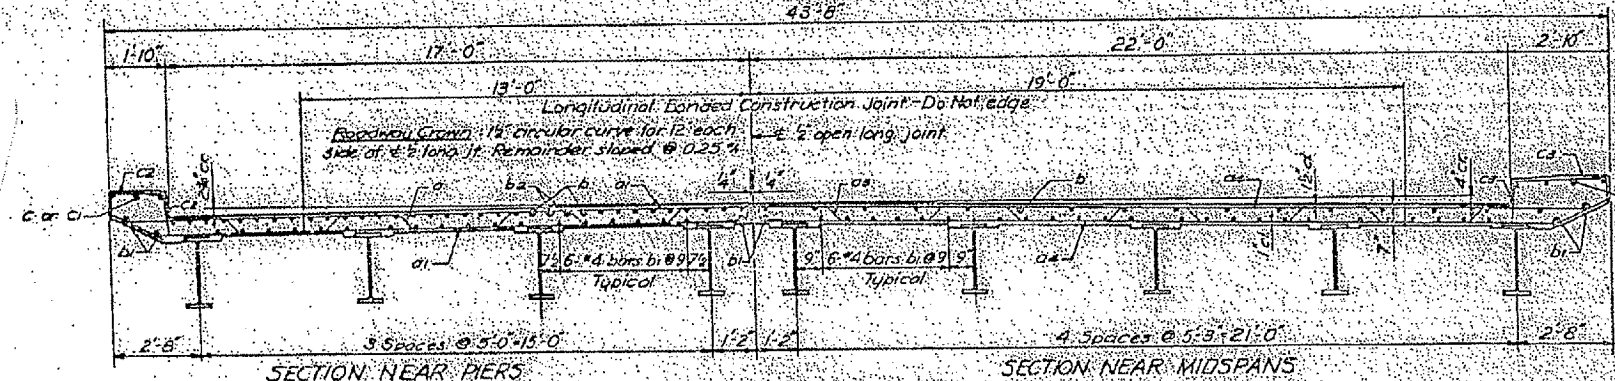 43'-8"
1'-10"
17'-0"
22'-0"
2'-10"
13'-0"
19'-0"
Longitudinal Bonded Construction Joint-Do Not edge
Roadway Crown: 1½" circular curve for 12' each
side of ℄ ½" long. jt. Remainder sloped @ 0.25%
℄ ½" open long. joint
c2
c or c1
a
b2
b
a1
¼" ¼"
a3
b
c3
b1
a1
7½" 6-#4 bars b1 @ 9" 7½"
Typical
b1
9" 6-#4 bars b1 @ 9" 9"
Typical
1" cl.
7"
b1
2'-8"
3 Spaces @ 5'-0"=15'-0"
1'-2"
1'-2"
4 Spaces @ 5'-3"=21'-0"
2'-8"
SECTION NEAR PIERS
SECTION NEAR MIDSPANS